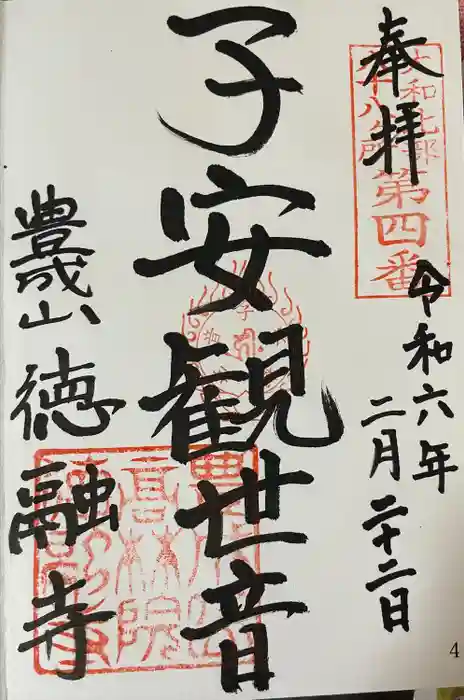 奉拝
大和北部
八十八ヶ所
第四番
令和六年
二月二十二日
子安観世音
豊成山
高林院
豊成山徳融寺
4